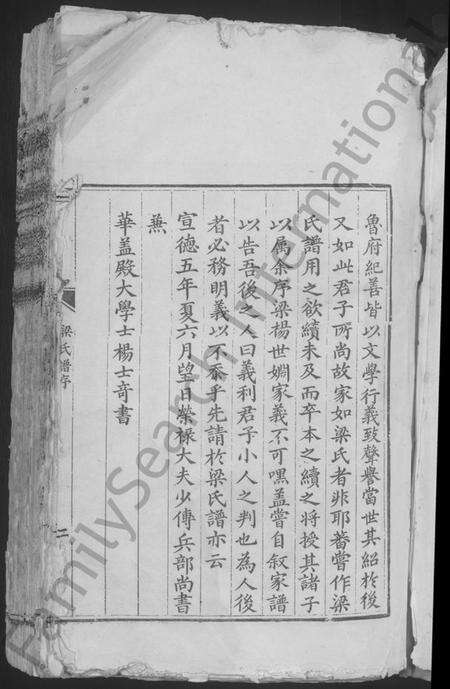 魯府紀善皆以文學行義致聲譽當世其紹於後
又如此君子所尚故家如梁氏者非耶嘗作梁
氏譜用之欲續未及而卒本之續之將授其諸子
以屬余序梁楊世婣家義不可嘿蓋嘗自敘家譜
以告吾後之人曰義利君子小人之判也為人後
者必務明義以不忝乎先請於梁氏譜亦云
宣德五年夏六月望日榮祿大夫少傅兵部尚書
兼
華蓋殿大學士楊士奇書
梁氏譜序
二
FamilySearch International